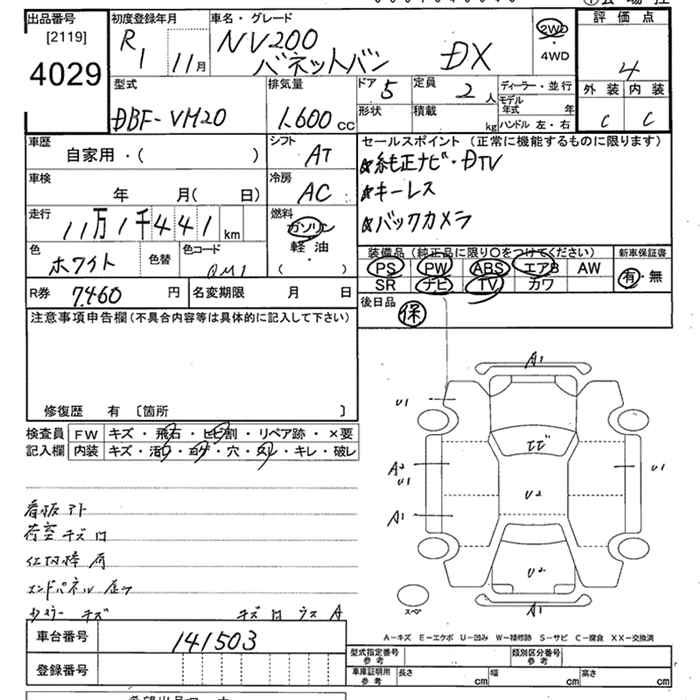 出品番号
[2119]
4029
初度登録年月
R1 11月
車名・グレード
NV200
バネットバン DX
2WD
・
4WD
評価点
4
外装 内装
C C
型式
DBF-VM20
排気量
1.600 cc
ドア 5
定員 2人
ディーラー・並行
形状
積載 kg
モデル年式 年
ハンドル 左・右
車歴
自家用・( )
シフト
AT
セールスポイント (正常に機能するものに限ります)
☆純正ナビ・DTV
☆キーレス
☆バックカメラ
車検
年 月( 日)
冷房
AC
走行
11万1千441 km
燃料
ガソリン
軽油
・
( )
色
ホワイト
色替
色コード
QM1
装備品 (純正品に限り〇をつけてください)
新車保証書
PS PW ABS エアB AW
SR ナビ TV カワ
有・無
R券 7460 円
名変期限 月 日
後日品
保
注意事項申告欄(不具合内容等は具体的に記入して下さい)
修復歴 有 〔箇所 〕
検査員
記入欄
FW キズ・飛石・ヒビ割・リペア跡・×要
内装 キズ・汚レ・コゲ・穴・スレ・キレ・破レ
看板アト
荷室キズ凹
エンドパネル
キズ凹 ウス A
A1
U1
A2
U1
A1
U1
ヒビ
U2
U2
A1
スペア
A-キズ E-エクボ U-凹み W-補修跡 S-サビ C-腐食 XX-交換済
車台番号
141503
登録番号
型式指定番号
参考
類別区分番号
参考
車庫証明用
参考
長さ cm
幅 cm
高さ cm